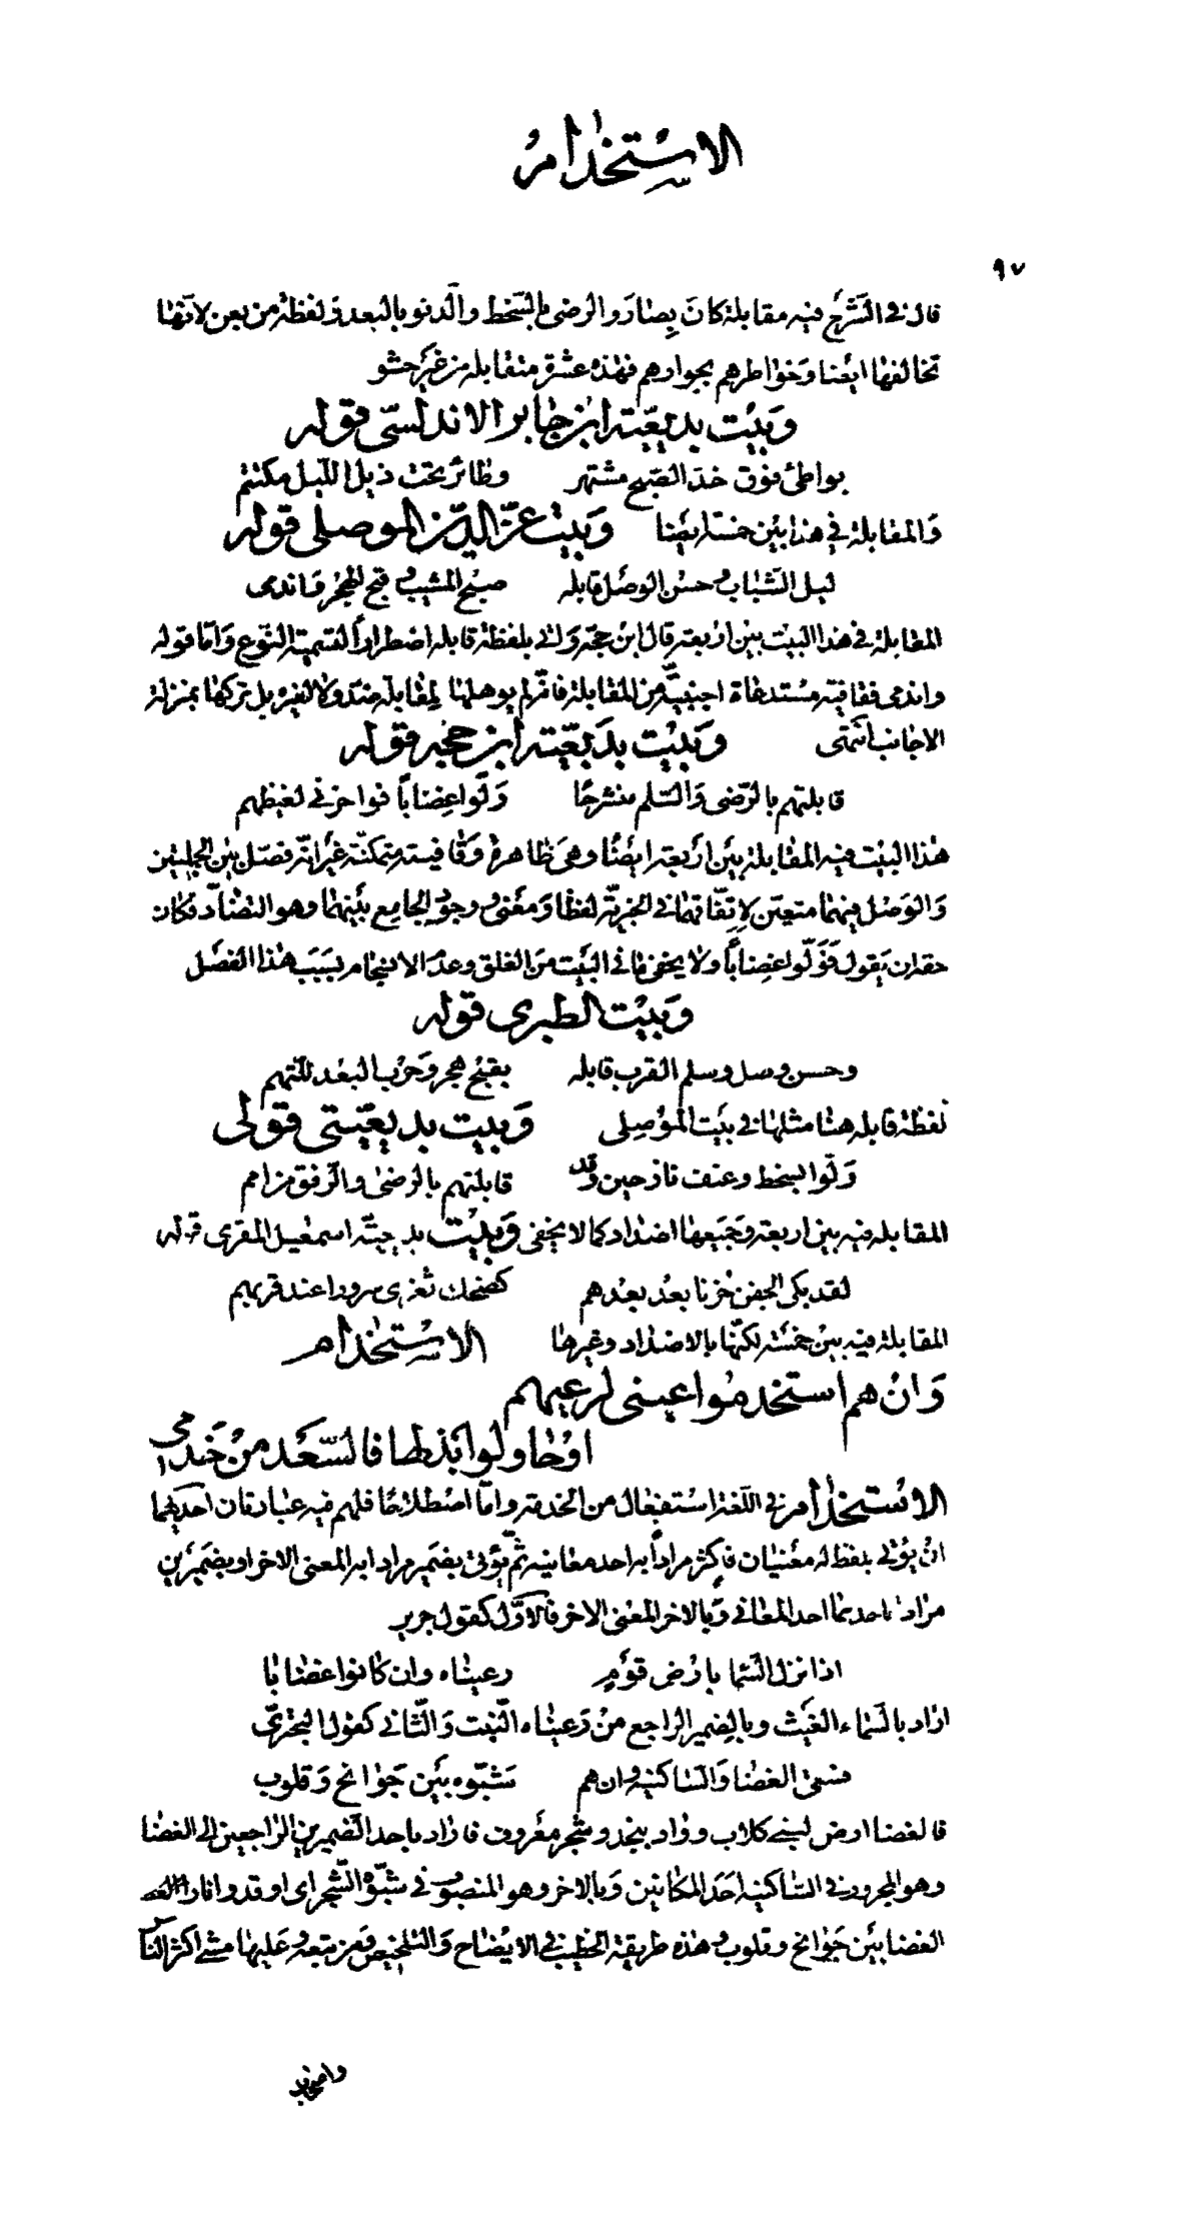 الاستخدام
٩٧
قال في الشرح فيه مقابلة كان بصار والرضى بالسخط والدنو بالبعد ولفظة من بعن لانها
تخالفها ايضا وخواطرهم بجوارهم فهذه عشرة متقابلة من غير حشو
وبيت بديعية ابن جابر الاندلسى قوله
بواطئ فوق خد الصبح مشتهر وطائر تحت ذيل الليل مكتتم
والمقابلة في هذا بين خمسة ايضا وبيت عز الدين الموصلى قوله
ليل الشباب وحسن الوصل قابله صبح المشيب وقبح الهجر واندمى
المقابلة في هذا البيت بين اربعة قال ابن حجة ولى بلفظة قابله اضطرارا لتسمية النوع واما قوله
واندمى فقافية مستدعاة اجنبية من المقابلة فانه لم يوهلها لمقابلة ضد ولا لغيره بل تركها بمنزلة
الاجانب انتهى وبيت بديعية ابن حجة قوله
قابلتهم بالرضى والسلم منشرحا ولوا غضابا فوا حزنى لغيظهم
هذا البيت فيه المقابلة بين اربعة ايضا وهى ظاهرة وقافيته متمكنة غير انه فصل بين الجملتين
والوصل بينهما متعين لاتفاقهما في الخبرية لفظا ومعنى ووجود الجامع بينهما وهو التضاد فكان
حقه ان يقول فولوا غضابا ولا يخفى ما في البيت من القلق وعدم الانسجام بسبب هذا الفصل
وبيت الطبرى قوله
وحسن وصل وسلم القرب قابله بقبح هجر وحرب البعد للتهم
لفظة قابله هنا مثلها في بيت الموصلى وبيت بديعيتى قولى
ولوا بسخط وعنف نازحين وقد قابلتهم بالرضى والرفق من امم
المقابلة فيه بين اربعة وجميعها اضداد كما لا يخفى وبيت بديعية اسمعيل المقرى قوله
لقد بكى الجفن حزنا بعد بعدهم كضحك ثغرى سرورا عند قربهم
المقابلة فيه بين خمسة لكنها بالاضداد وغيرها الاستخدام
وان هم استخدموا عينى لرعيهم
او حاولوا بذلها فالسعد من خدمى
الاستخدام في اللغة استفعال من الخدمة واما اصطلاحا فلهم فيه عبارتان احديهما
ان يؤتى بلفظ له معنيان فاكثر مرادا به احد معانيه ثم يؤتى بضمير مرادا به المعنى الاخر او بضميرين
مرادا باحدهما احد المعانى وبالاخر المعنى الاخر فالاول كقول جرير
اذا نزل السما بارض قوم رعيناه وان كانوا غضابا
اراد بالسماء الغيث وبالضمير الراجع من رعيناه النبت والثانى كقول البحترى
فسقى الغضا والساكنيه وان هم شبوه بين جوانح وقلوب
فالغضا ارض لبنى كلاب وواد بنجد وشجر معروف فاراد باحد الضميرين الراجعين الى الغضا
وهو المجرور في الساكنيه احد المكانين وبالاخر وهو المنصوب في شبوه الشجر اى اوقدوا نار الغضا
الغضا بين جوانح وقلوب وهذه طريقة الخطيب في الايضاح والتلخيص ومن تبعه وعليها مشى اكثر النا